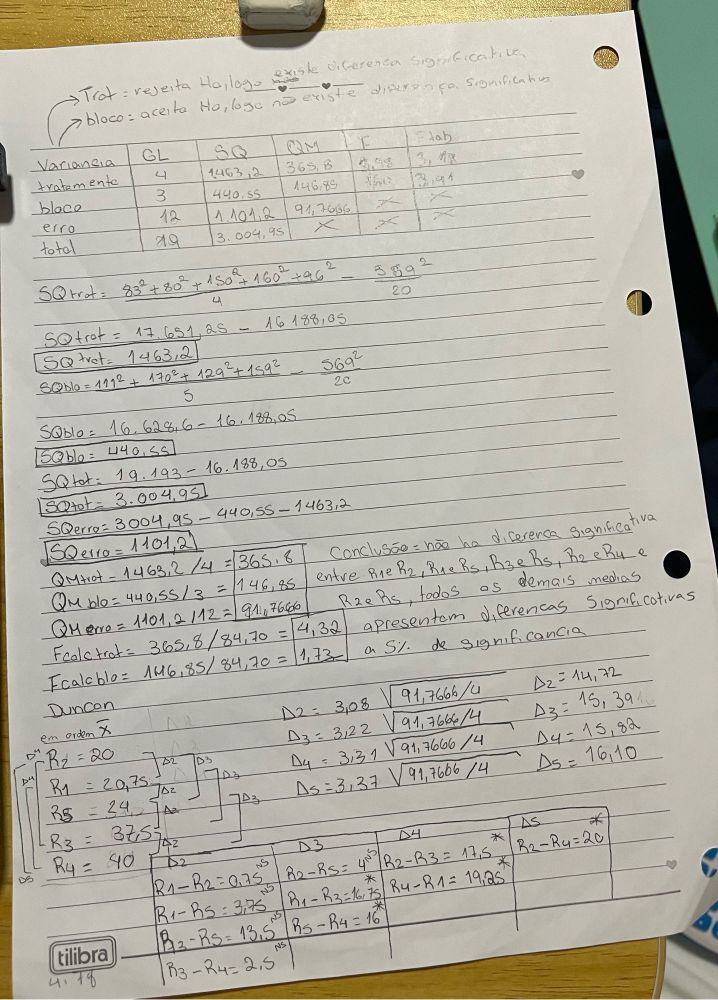 Trat = rejeita Ho, logo existe diferença significativa
bloco = aceita Ho, logo não existe diferença significativa
Variansia GL SQ QM F Ftab
tratamento 4 1463,2 365,8 3,98 3,18
bloco 3 440,55 146,85 3,91
erro 12 1.101,2 91,7666 X X
total 19 3.004,95 X X X
SQtrat = 83² + 80² + 150² + 160² + 96² / 4 - 569² / 20
SQtrat = 17.651,25 - 16188,05
SQtrat = 1463,2
SQblo = 111² + 170² + 129² + 159² / 5 - 569² / 20
SQblo = 16.628,6 - 16.188,05
SQblo = 440,55
SQtot = 19.193 - 16.188,05
SQtot = 3.004,95
SQerro = 3004,95 - 440,55 - 1463,2
SQerro = 1101,2
QMtrat = 1463,2 /4 = 365.8
QMblo = 440,55/3 = 146,85
QMerro = 1101,2 /12 = 91,7666
Fcalctrat = 365,8/84,70 = 4,32
Fcalcblo = 146,85/84,70 = 1,73
Conclusão = não ha diferença significativa
entre R1 e R2, R1 e R5, R3 e R5, R2 e R4 e
R2 e R5, todos os demais medias
apresentam diferencas significativas
a 5% de significancia
Duncan
em ordem x̄
R2 = 20
R1 = 20,75
R5 = 24
R3 = 37,5
R4 = 40
Δ2 Δ3
Δ2 Δ3
Δ2 Δ3
Δ2
Δ4
Δ4
Δ5
Δ2 = 3,08 √91,7666/4 Δ2 = 14,72
Δ3 = 3,22 √91,7666/4 Δ3 = 15,39
Δ4 = 3,31 √91,7666/4 Δ4 = 15,82
Δ5 = 3,37 √91,7666/4 Δ5 = 16,10
Δ2 Δ3 Δ4 Δ5
R1-R2 = 0,75 NS R2-R5 = 4 NS R2-R3 = 17,5 * R2-R4 = 20 *
R1-R5 = 3,75 NS R1-R3 = 16,75 * R4-R1 = 19,25 *
R3-R5 = 13,5 NS R5-R4 = 16 *
R3-R4 = 2,5 NS
tilibra
4.78